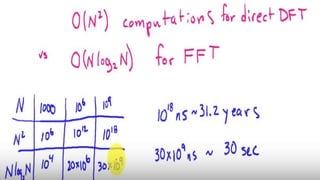 O(N²) computations for direct DFT
vs
O(N log₂N) for FFT
N 1000 10⁶ 10⁹
N² 10⁶ 10¹² 10¹⁸
N log₂N 10⁴ 20×10⁶ 30×10⁹
10¹⁸ ns ~ 31.2 years
30×10⁹ ns ~ 30 sec